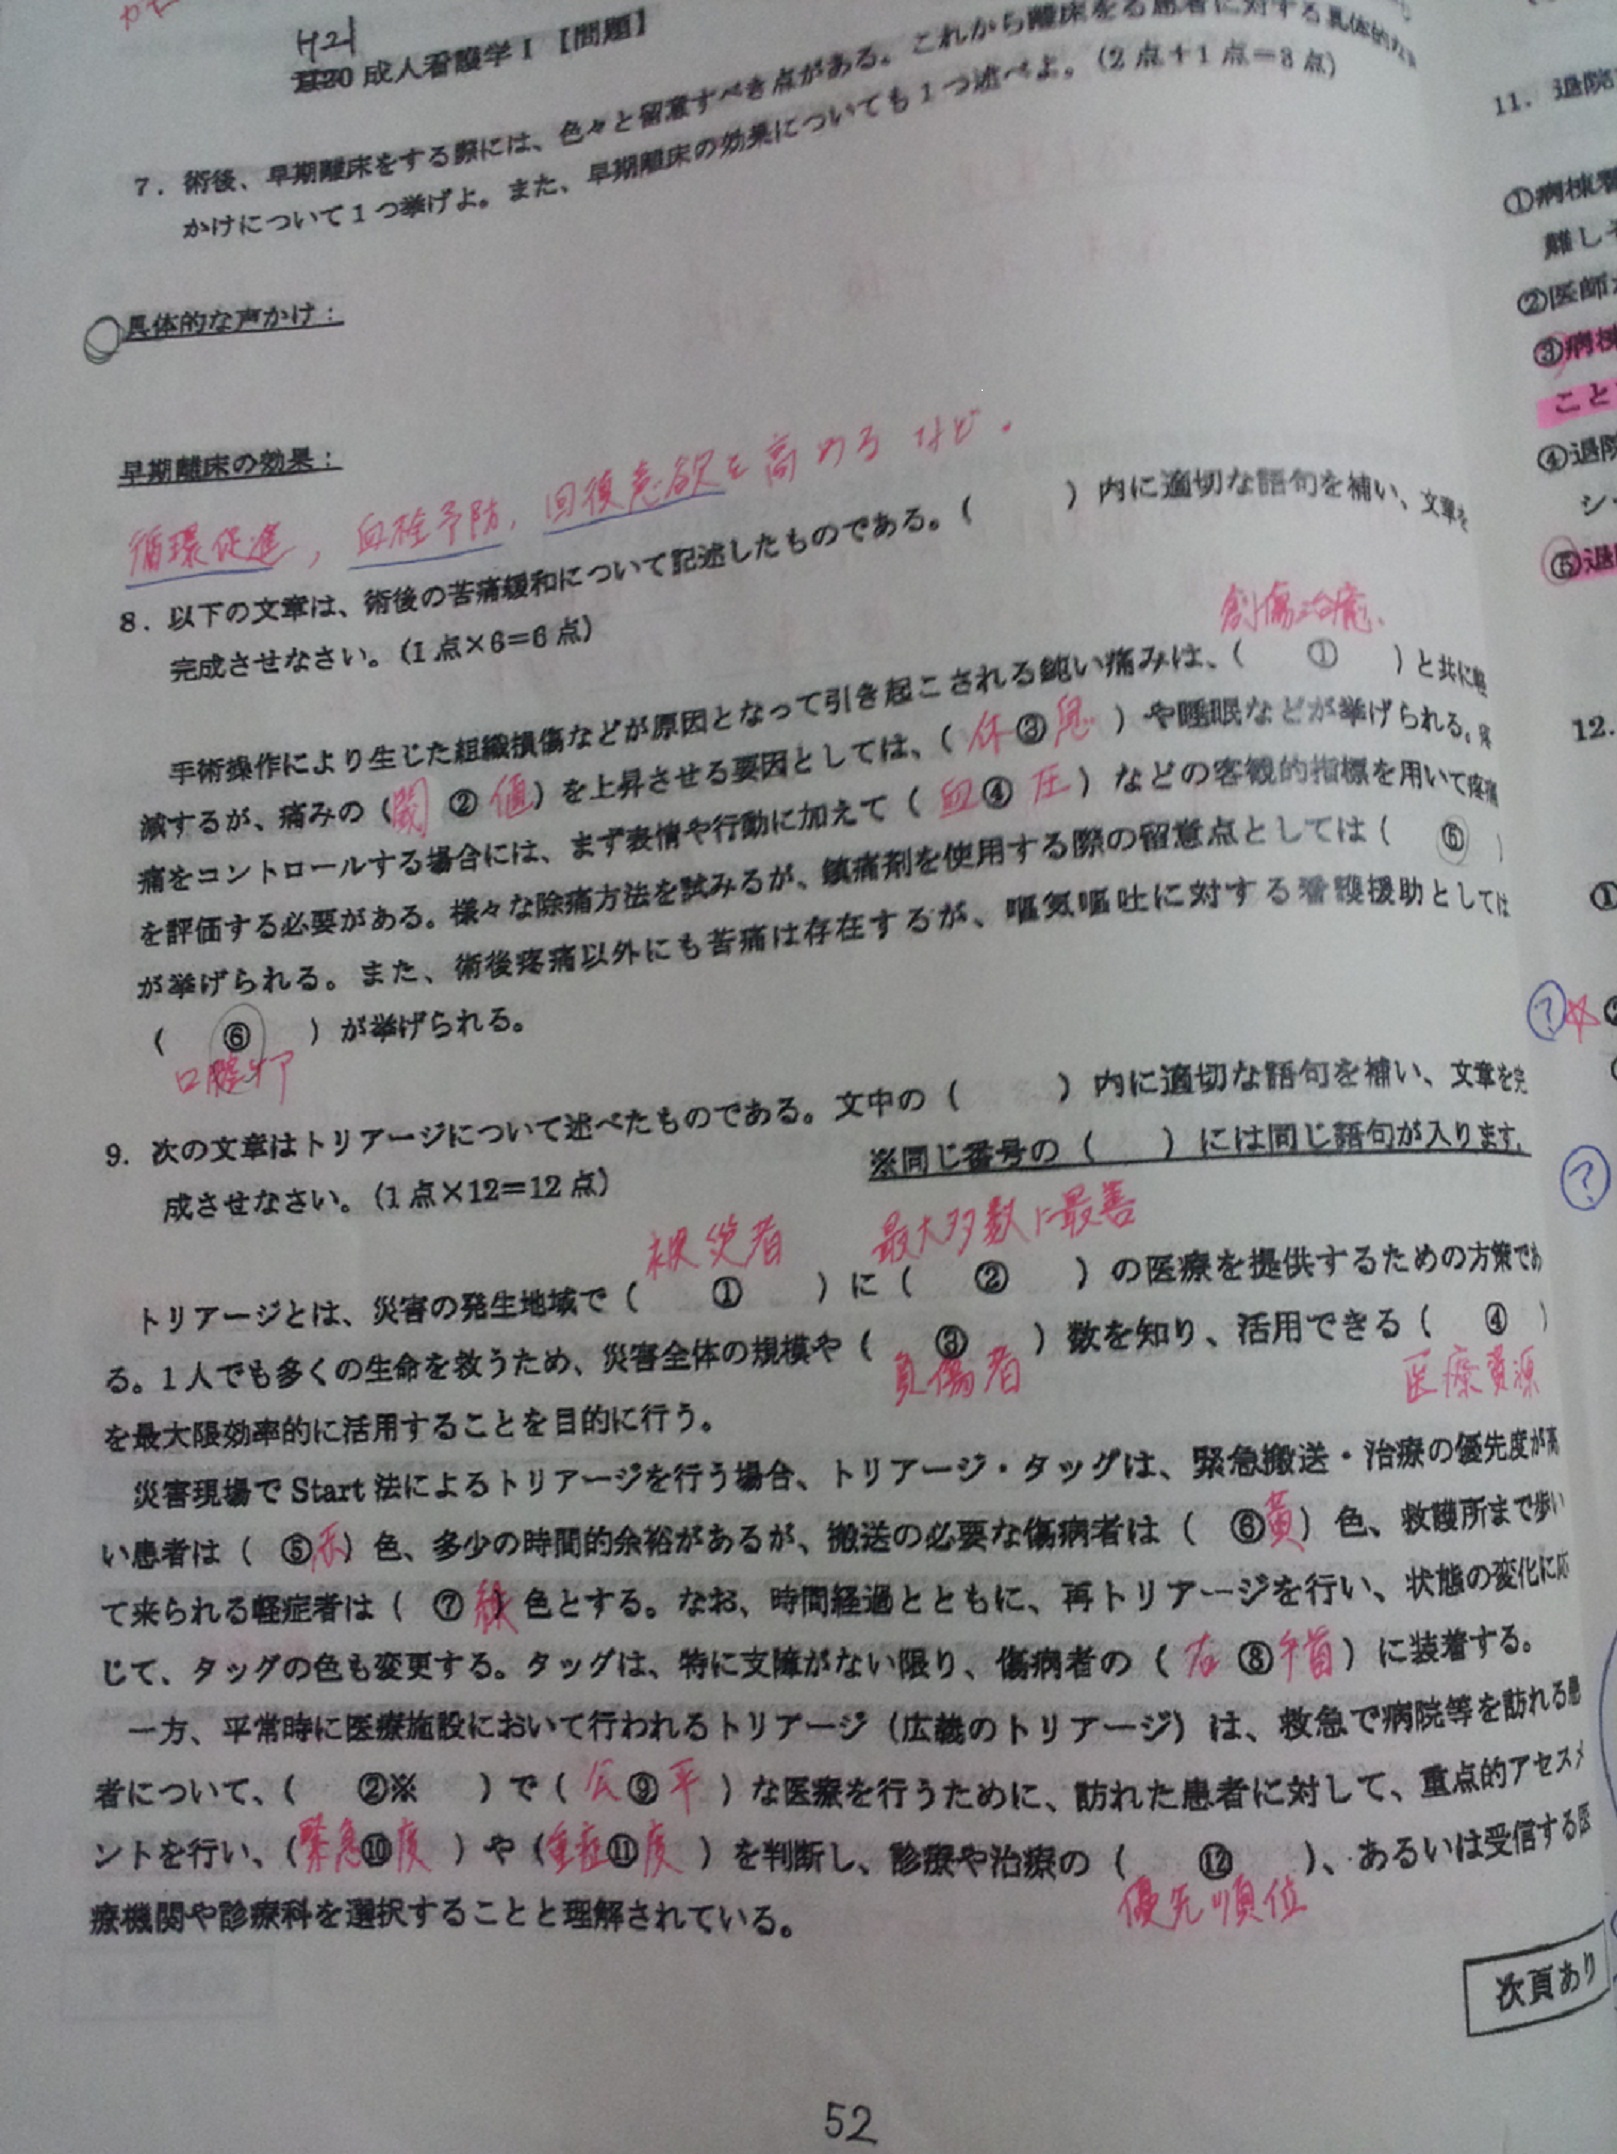 H21
H20 成人看護学Ⅰ【問題】
7. 術後、早期離床をする際には、色々と留意すべき点がある。これから離床をする患者に対する具体的な
かけについて1つ挙げよ。また、早期離床の効果についても1つ述べよ。(2点+1点=3点)
具体的な声かけ:
早期離床の効果:
循環促進, 血栓予防, 回復意欲を高める など.
8. 以下の文章は、術後の苦痛緩和について記述したものである。( )内に適切な語句を補い、文章を
完成させなさい。(1点×6=6点)
創傷治癒
手術操作により生じた組織損傷などが原因となって引き起こされる鈍い痛みは、( ① )と共に軽
減するが、痛みの(閾 ②値)を上昇させる要因としては、(休③息)や睡眠などが挙げられる。疼
痛をコントロールする場合には、まず表情や行動に加えて(血④圧)などの客観的指標を用いて疼痛
を評価する必要がある。様々な除痛方法を試みるが、鎮痛剤を使用する際の留意点としては( ⑤ )
が挙げられる。また、術後疼痛以外にも苦痛は存在するが、嘔気嘔吐に対する看護援助としては
( ⑥ )が挙げられる。
口腔ケア
9. 次の文章はトリアージについて述べたものである。文中の( )内に適切な語句を補い、文章を完
成させなさい。(1点×12=12点)
※同じ番号の( )には同じ語句が入ります。
被災者 最大多数に最善
トリアージとは、災害の発生地域で( ① )に( ② )の医療を提供するための方策であ
る。1人でも多くの生命を救うため、災害全体の規模や( ③ )数を知り、活用できる( ④ )
負傷者 医療資源
を最大限効率的に活用することを目的に行う。
災害現場でStart法によるトリアージを行う場合、トリアージ・タッグは、緊急搬送・治療の優先度が高
い患者は( ⑤赤)色、多少の時間的余裕があるが、搬送の必要な傷病者は( ⑥黄)色、救護所まで歩い
て来られる軽症者は( ⑦ 緑)色とする。なお、時間経過とともに、再トリアージを行い、状態の変化に応
じて、タッグの色も変更する。タッグは、特に支障がない限り、傷病者の(右⑧手首)に装着する。
一方、平常時に医療施設において行われるトリアージ(広義のトリアージ)は、救急で病院等を訪れる患
者について、( ②※ )で(公⑨平)な医療を行うために、訪れた患者に対して、重点的アセスメ
ントを行い、(緊急⑩度)や(重症⑪度)を判断し、診療や治療の( ⑫ )、あるいは受信する医
優先順位
療機関や診療科を選択することと理解されている。
次頁あり
52
11. 退院
①病棟
難しそ
②医師
③病棟
こと
④退院
シ
⑤退
12.
①
?
?